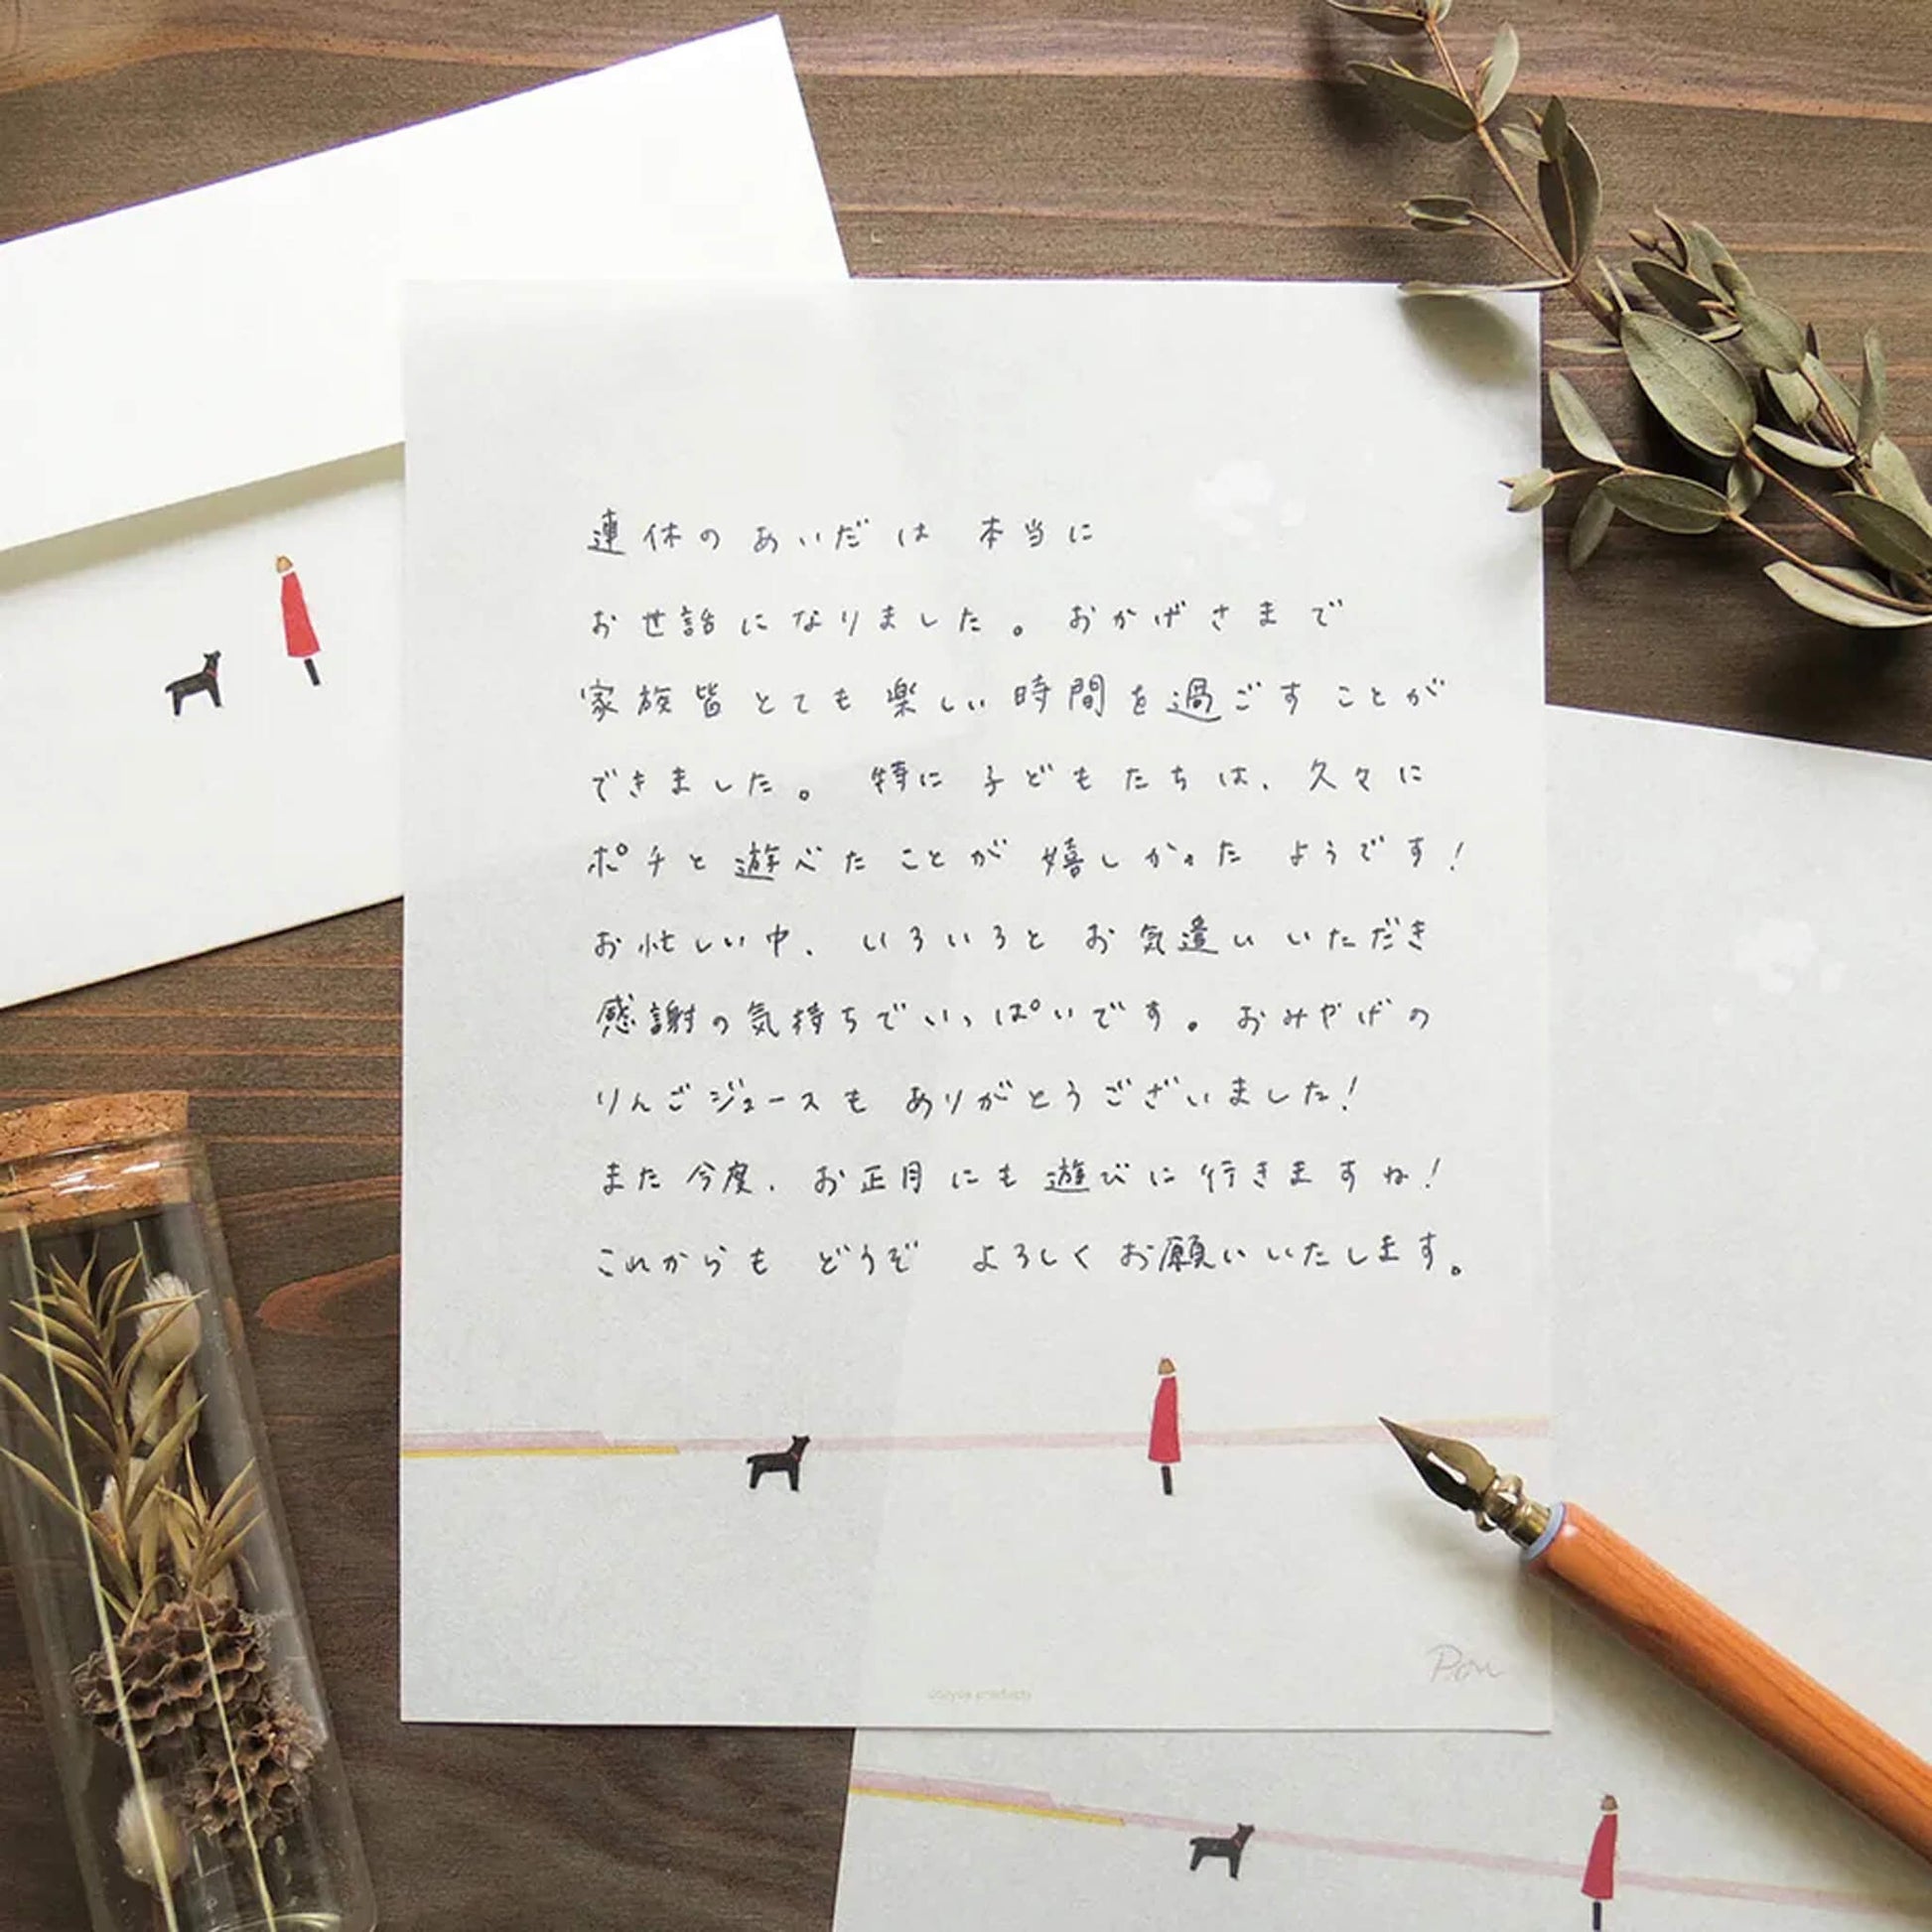 連休のあいだは 本当に
お世話になりました。おかげさまで
家族皆とても楽しい時間を過ごすことが
できました。特に子どもたちは、久々に
ポチと遊べたことが嬉しかったようです!
お忙しい中、いろいろとお気遣いいただき
感謝の気持ちでいっぱいです。おみやげの
りんごジュースも ありがとうございました!
また今度、お正月にも遊びに行きますね!
これからも どうぞ よろしくお願いいたします。